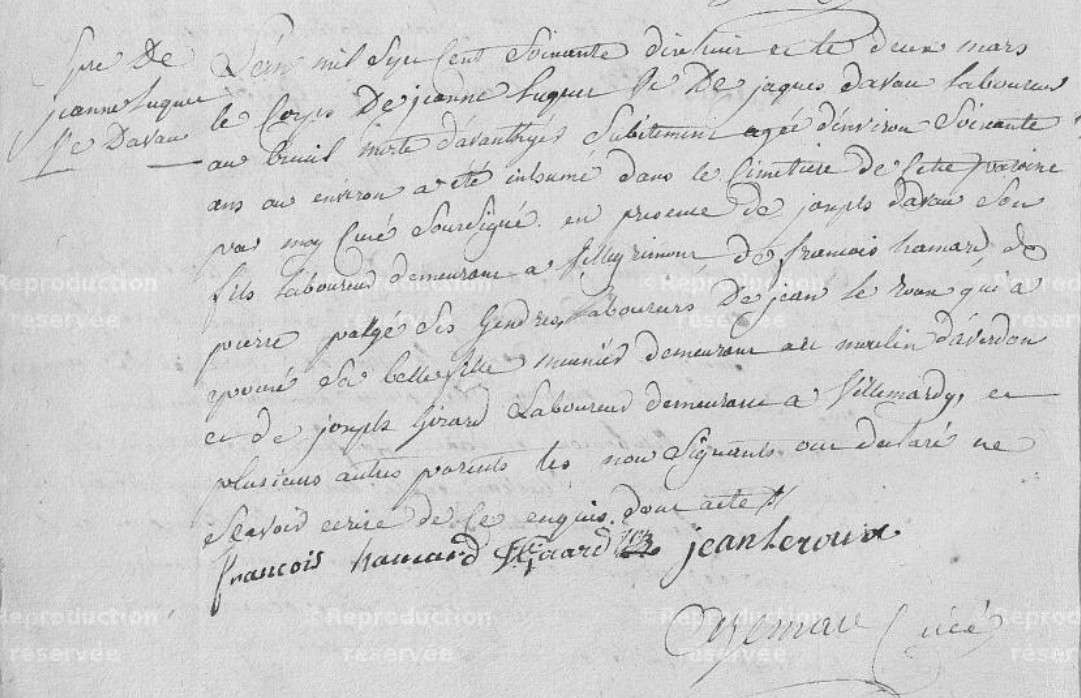 Spre De
jeanne Luquet
fe Davau
L'an mil Sept Cent Soixante dix huit et le deux mars
le Corps De jeanne Luqueur fe De jaques davau laboureur
au breuil morte d'avanthyer Subitement agée d'environ Soixante
ans ou environ a été inhumé dans le Cimetiere de Cette paroise
par moy Curé Soussigné en presence de joseph davau Son
fils laboureur demeurant a de françois hamard, de
pierre Ses Gendres, laboureurs de jean le roux qui a
epousé Sa belle fille meunier demeurant au moulin d'averdon
et de joseph Girard Laboureur demeurant a Villemardy, et
plusieurs autres parents les non Signants ont declaré ne
Scavoir ecrire de Ce enquis, dont acte
françois hamard Girard jean Leroux
Curé
© Reproduction réservée